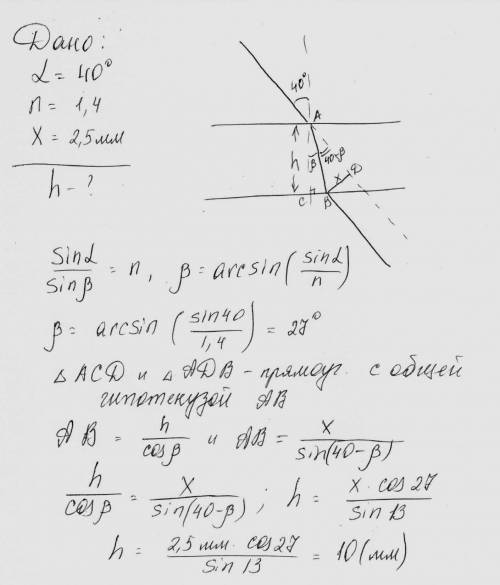 Дано:
α = 40°
n = 1,4
x = 2,5 мм
h - ?
40°
A
h
β
40-β
x
D
C
B
sinα/sinβ = n, β = arcsin(sinα/n)
β = arcsin(sin40/1,4) = 27°
△ ACD и △ ADB - прямоуг. с общей
гипотенузой AB
AB = h/cosβ и AB = x/sin(40-β)
h/cosβ = x/sin(40-β); h = x·cos27/sin13
h = 2,5 мм·cos27/sin13 = 10 (мм)